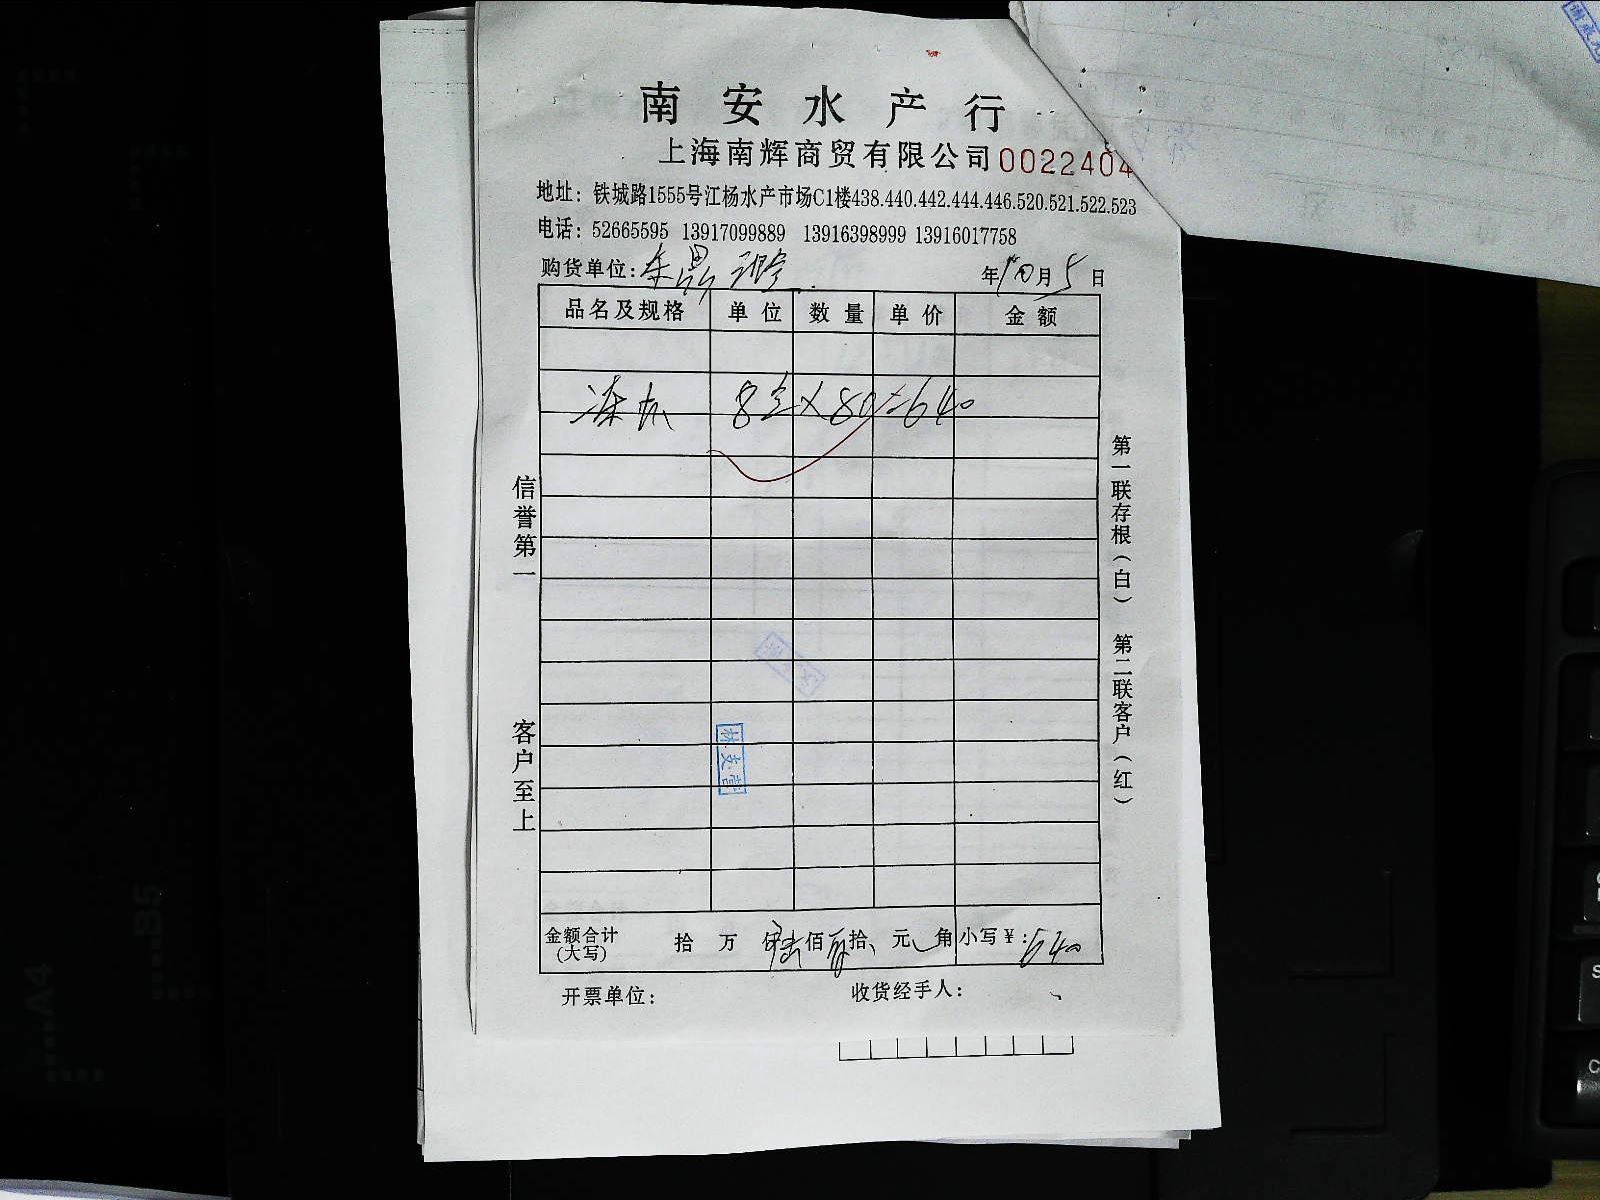 南安水产行
上海南辉商贸有限公司 0022404
地址：铁城路1555号江杨水产市场C1楼438.440.442.444.446.520.521.522.523
电话：52665595 13917099889 13916398999 13916017758
购货单位：
年10月5日
品名及规格 单位 数量 单价 金额
冻 8 × 80 = 640
信誉第一
客户至上
第一联存根（白）
第二联客户（红）
金额合计 拾 万 仟 佰 拾 元 角 小写￥：640
(大写)
开票单位： 收货经手人：
B5
A4